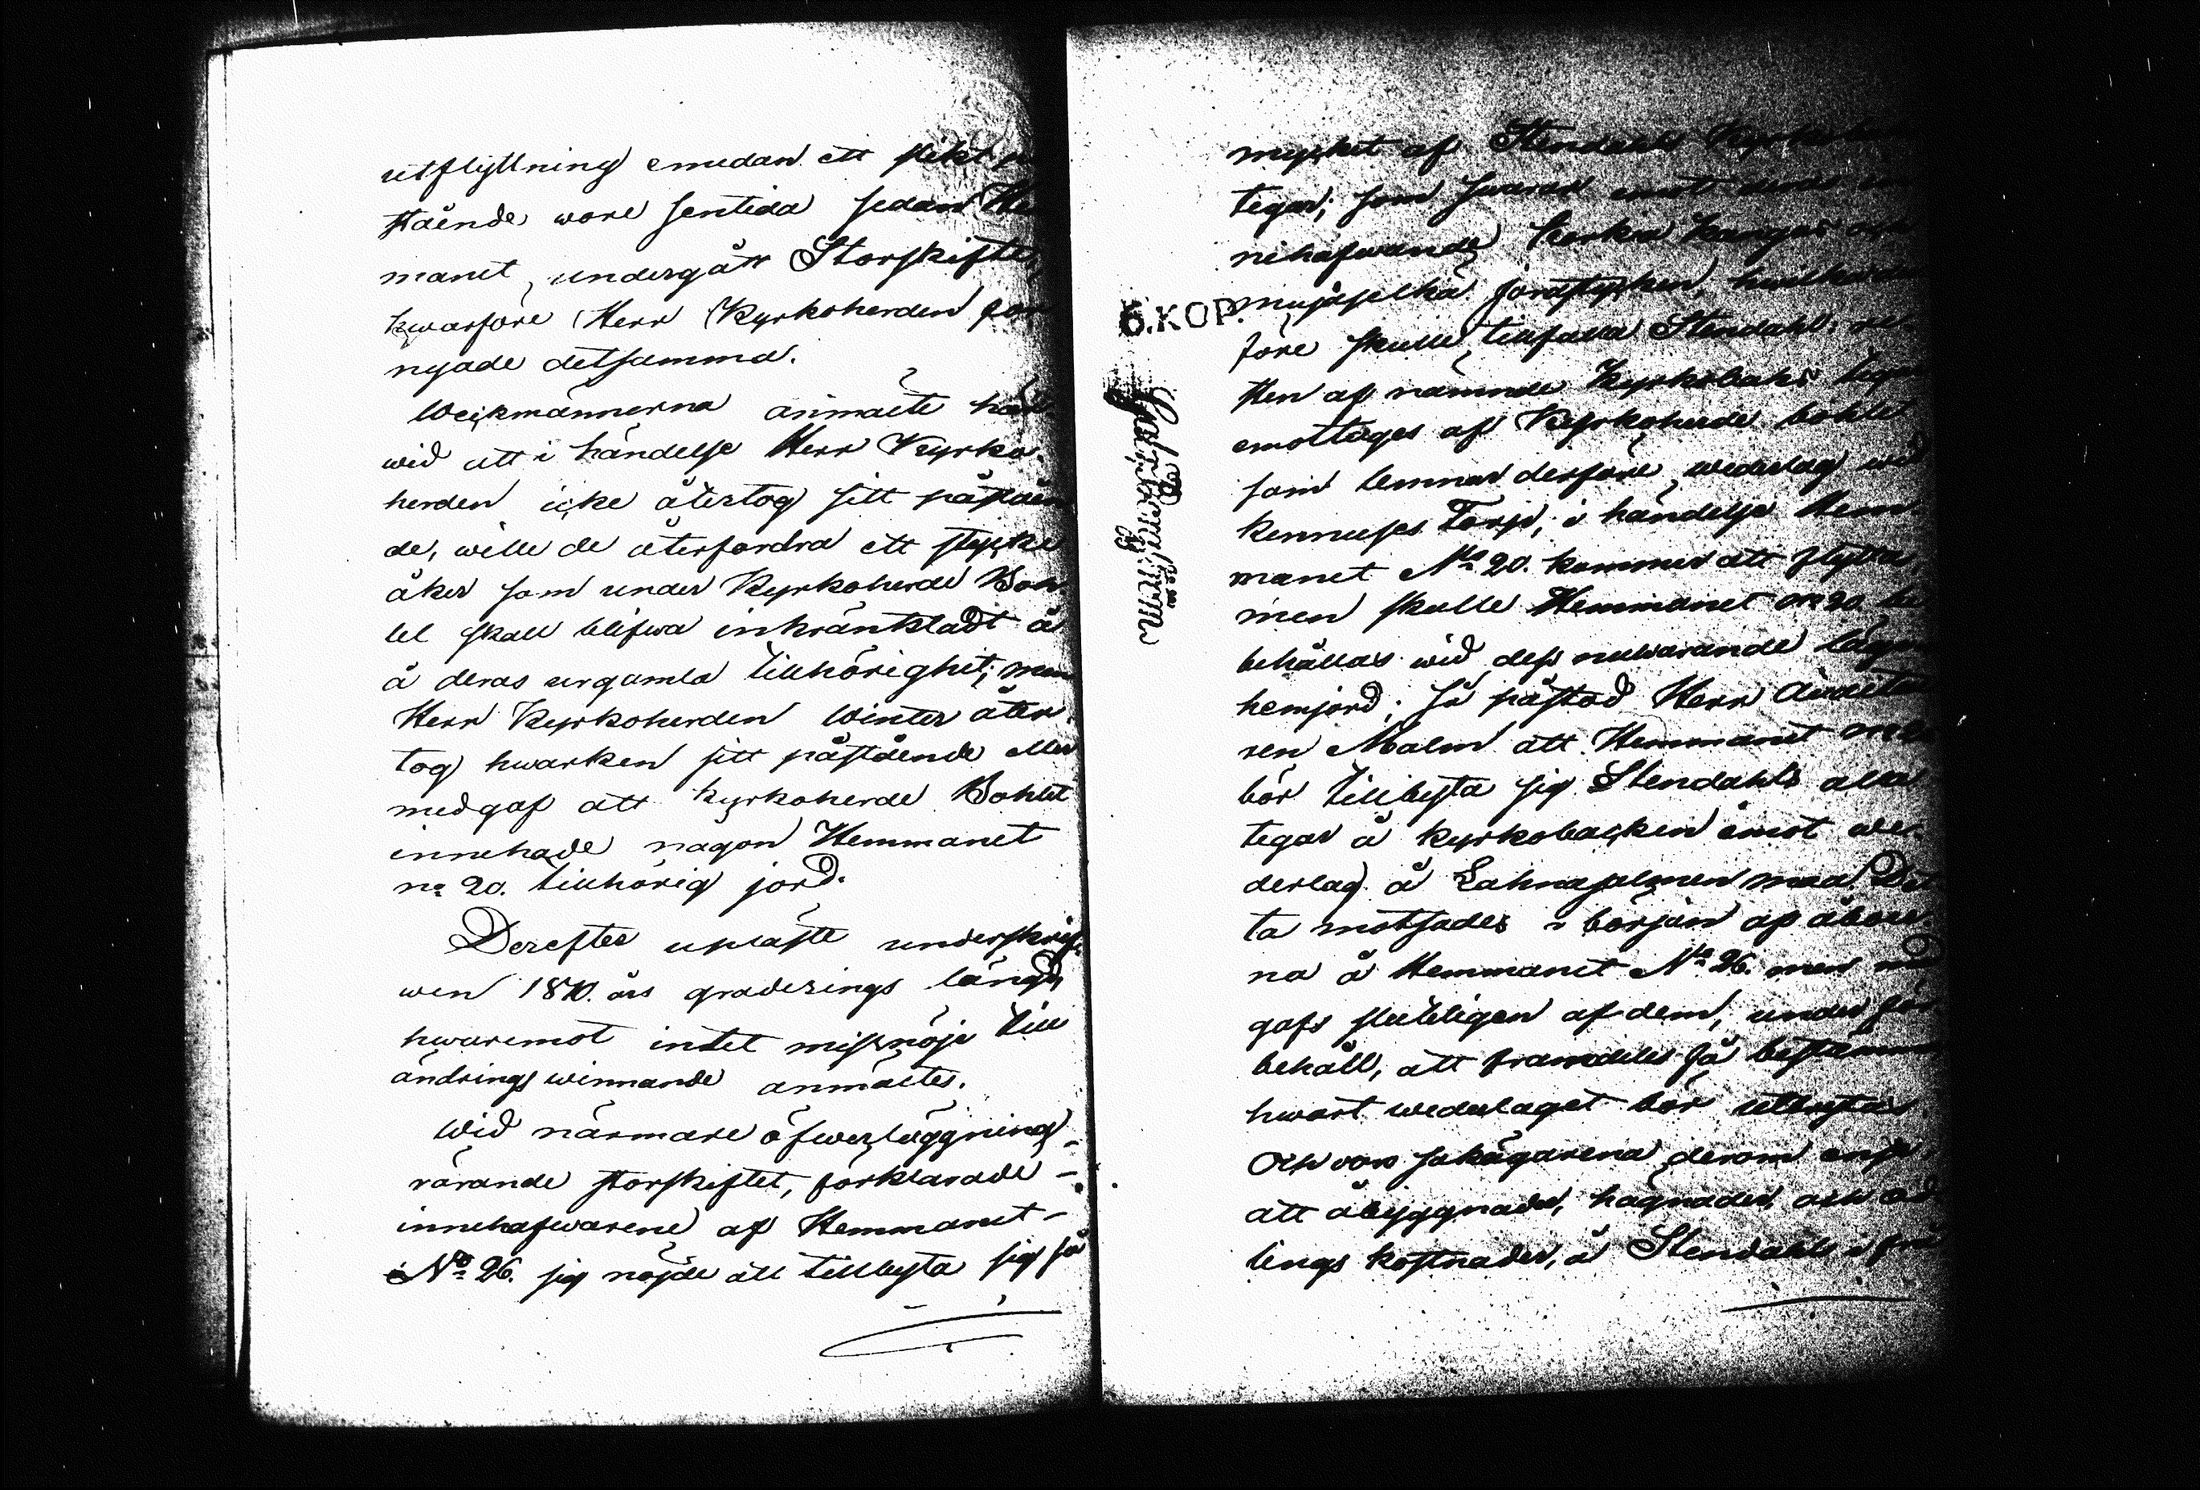 utflyttning emedan ett slikt på
stående wore sentida sedan He
manet undergått Storskifte,
hwarföre Herr Kyrkoherden för
nyade detsamma.
Weckmännerna anmälte här
wid att i händelse Herr Kyrko-
herden icke återtog sitt påståen
de, wille de återfordra ett stycke
åker som under Kyrkoherde Boh
let skall blifwa inkräktadt å
å deras urgamla tillhörighet; men
Herr Kyrkoherden Winter åter
tog hwarken sitt påstående eller
medgaf att Kyrkoherde Bohlet
innehade någon Hemmanet
no 20. tillhörig jord.
Derefter uplästte underskrif-
wen 1810. års graderings längd,
hwaremot intet missnöje till
ändrings winnande anmältes.
Wid närmare öfwerläggning
rörande storskiftet, förklarade
innehafwarene af Hemmanet
No 26. sig nöjde att tillbyta sig så
mycket af Stendahls
tegar; som swarar emot deras
nehafwande
jordstycken, hwilka
före skulle tillfalla Stendahl.
sten af nämnde Kyrkobacks tegar
emottages af Kyrkoherde bohlet
som lemnar derföre wederlag wid
Torp; i händelse Hem
manet No 20. kommer att flytta,
men skulle Hemmanet no 20. be
behållas wid dess nuwarande lägen
hemjord; så påstod Herr Auditeu
ren Malm att Hemmanet
bör tillbyta sig Stendahls alla
tegar å Kyrkobacken emot we-
derlag å Lahnasalmen maa. Det
ta motsades i början af åboer
na å Hemmanet No 26. men med
gafs slutligen af dem, under för
behåll, att framdeles få bestämma
hwart wederlaget bör utbytas.
Och woro sakägarena derom ense
att åbyggnader, hägnader, och od
lings kostnader, å Stendahls
6. KOP.